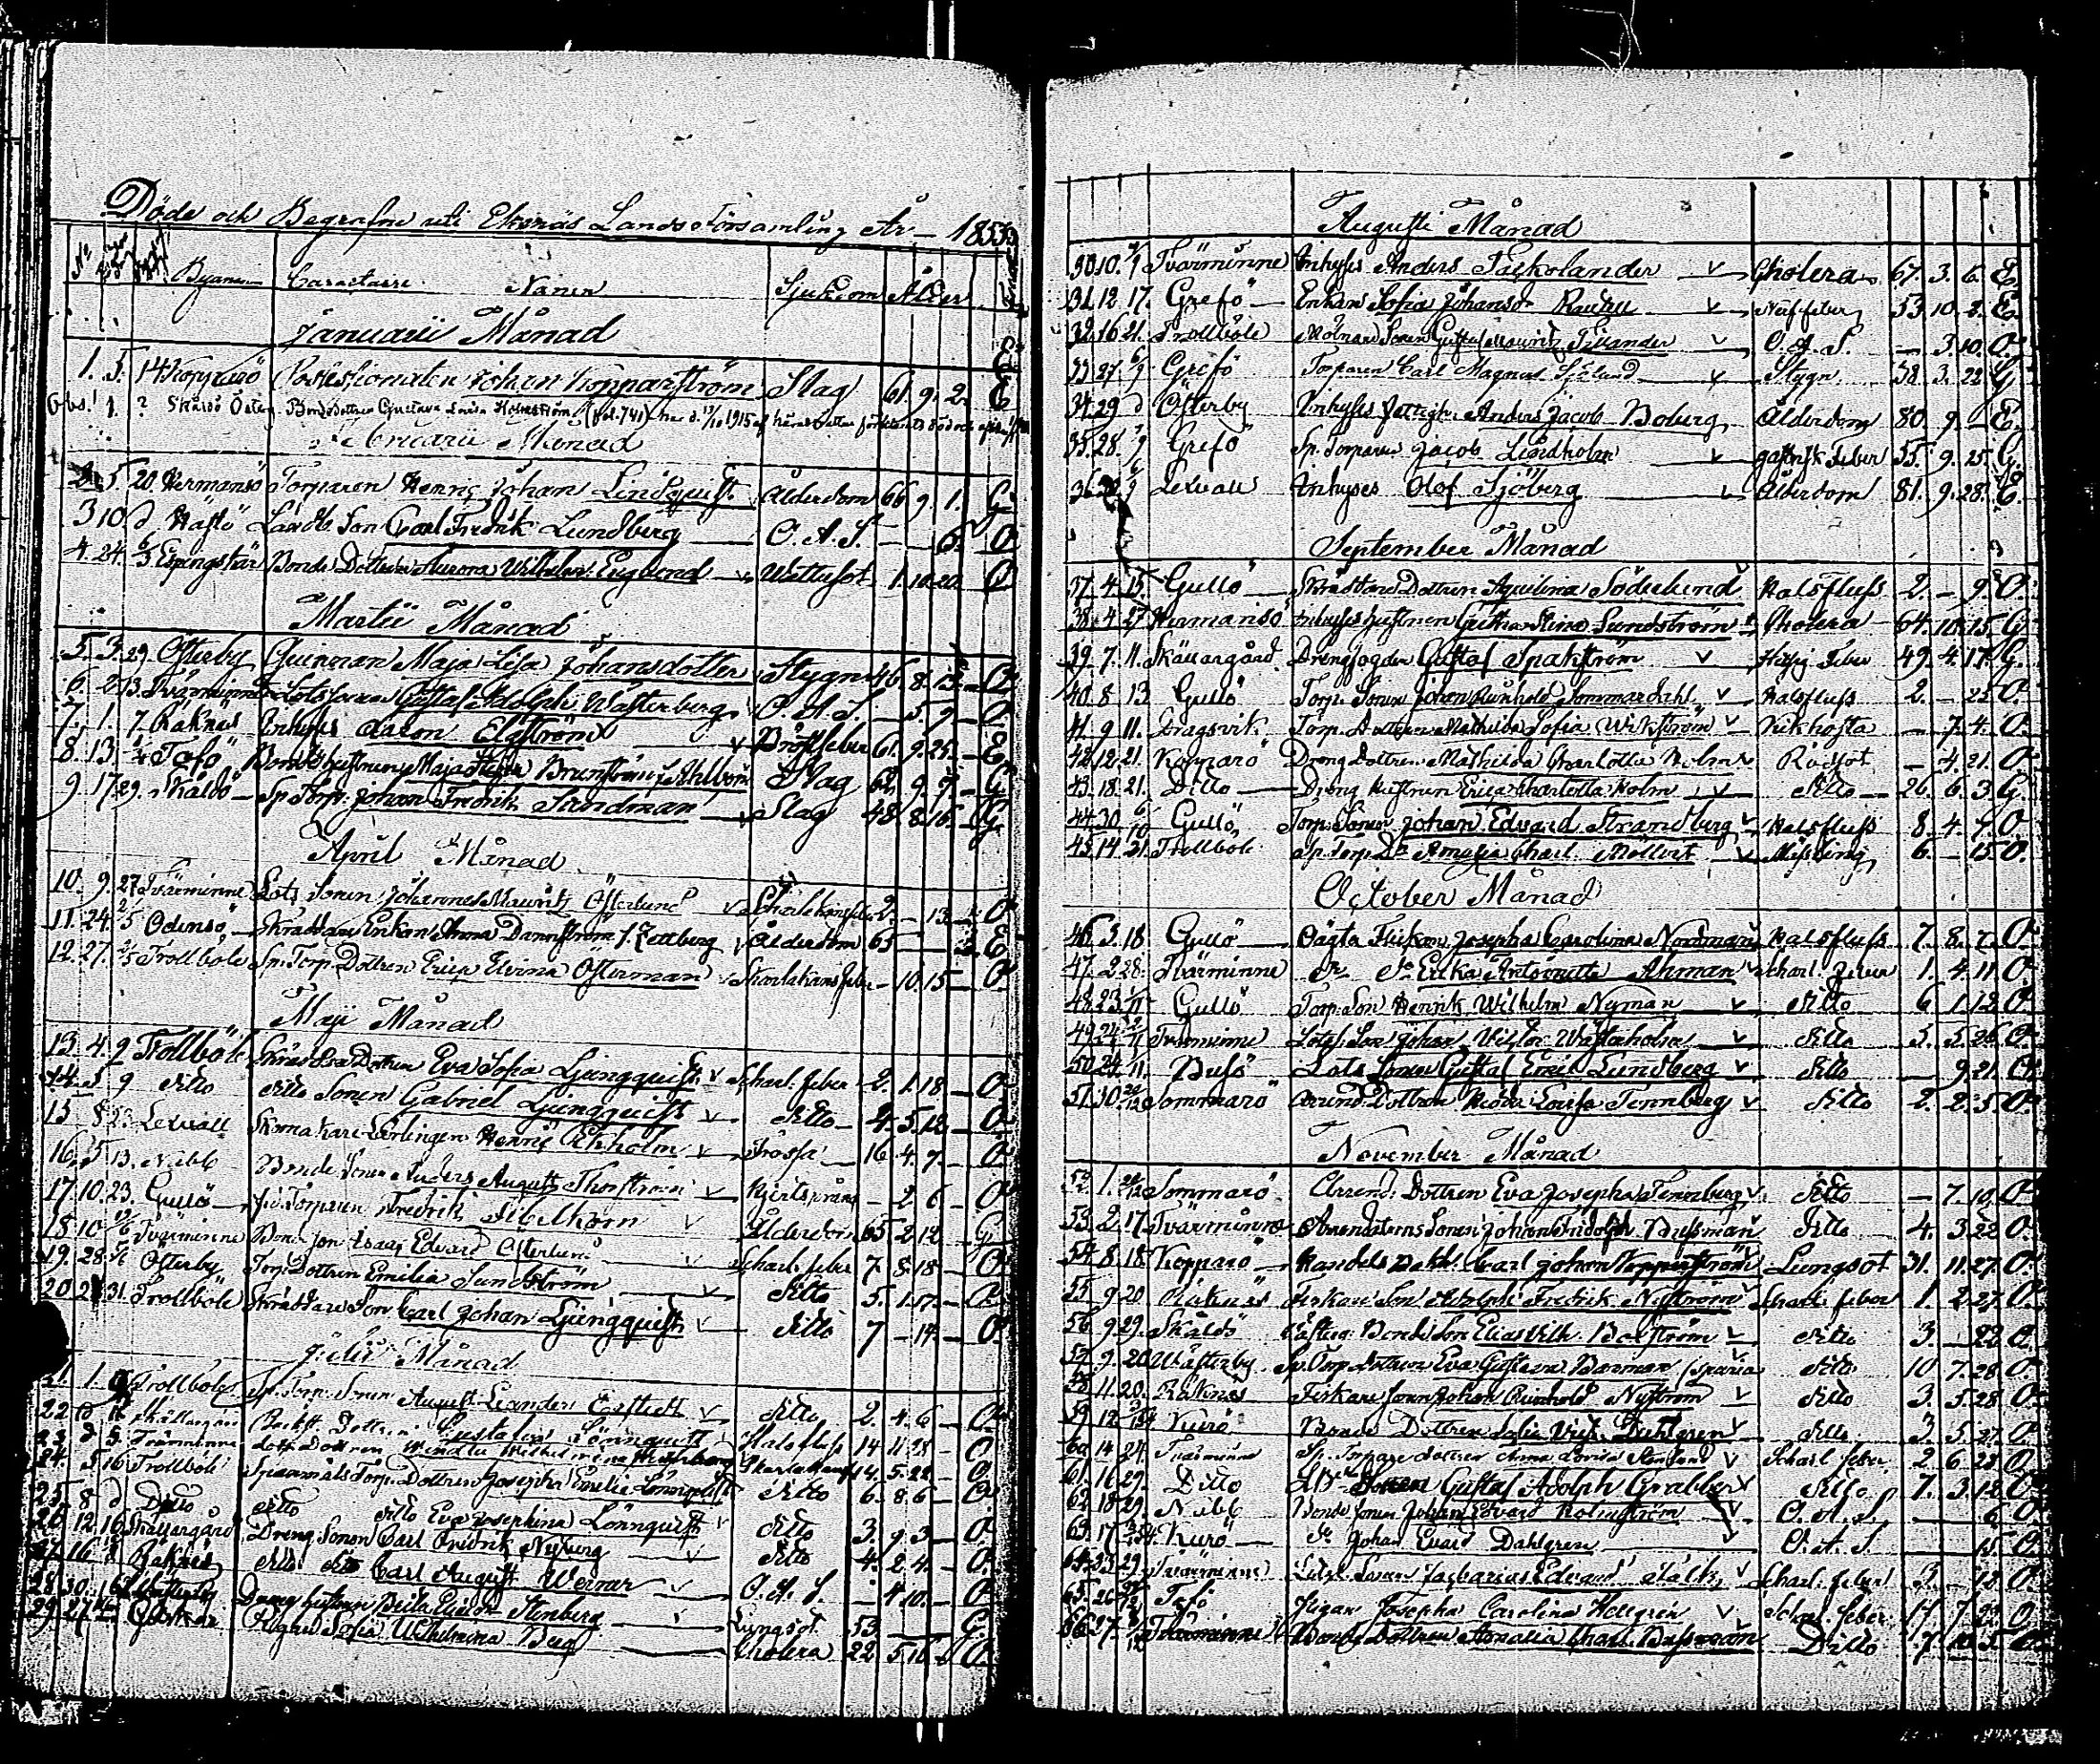 Döde och Begrafne uti Ekenäs Lands Församling År 1853
No Byarne Caracterer Namn Sjukdom Ålder
Januarii Månad
1. 5. 14 Kopparö Possessionaten Johan Kopparström Slag 61. 9. 2. E
Obs! 1. ? Skåldö Österg. Bondedottren Gustava Lovisa Holmström (fol. 741) har d. 13/10 1915 af häradsrätten förklarats död
Februarii Månad
2. 5 20 Hermansö Torparen Henric Johan Lindquist Ålderdom 66 9 1. G.
3 10 d Hästö Landb. Son Carl Fredrik Lundberg O. A. S. — — 6. O
4. 24. 6/3 Espingskär Bonde Dottren Aurora Wilhelm. Englund v Wattusot 1. 10. 20. O
Martii Månad
5. 3. 29 Österby Qvinnan Maja Lisa Johansdotter Stygn 46. 8. 13. O
6. 2 13. Tvärminne Lots Sonen Gustaf Adolph Wästerberg v O. A. S. — 5. 9 — O.
7. 1. 7. Baknäs Inhyses Aaron Elgström v Bröstfeber 61. 9. 25. — E
8. 13. Tofö Bonde hustrun Maja Stina Brunström f. Ahlbom Slag 62. 9. 9. — G
9 17 29. Skåldö Sp. Torp. Johan Fredrik Sandman v Slag 48. 8. 16. — G.
April Månad
10. 9. 27 Tvärminne Lots Sonen Johannes Mauritz Österlund v Scharlakansfeber 2. — 13 — O
11. 24. 2/5 Odensö Skräddare Enkan Anna Dannström f. Zettberg v Ålderdom 65 — — E
12. 27. 2/5 Trollböle Sp. Torp. Dottren Erica Elvina Österman v Skarlakans feber — 10. 15 — O
Maji Månad
13. 4. 9 Trollböle Skräddare Dottren Eva Sofia Ljungquist v Scharl. feber 2. 1. 18 — O
14. 5 9 ditto ditto Sonen Gabriel Ljungquist v ditto — 4. 5. 12 — O
15 8 Lexvall Skomakare Lärlingen Henric Ekholm v Frossa — 16. 4. 7. — O
16. 5 13. Näbb Bonde Sonen Anders August Thorström v Hjertsprång — 2 6 — O
17. 10. 23. Gullö Fr. Torparen Fredrik Ablkorn v Ålderdom 65 2. 12 — G
18. 10 Tvärminne Bond son Isaac Edvard Österlund v Scharl. feber 7. 8. 18 — O
19. 28 Österby Torp. Dottren Emilia Sundström v ditto 5. 1. 17. — O.
20. 2 31. Trollböle Skräddare Son Carl Johan Ljungquist v ditto 7 — 14. — O.
Julii Månad
21. 1. Trollböle Sp. Torp. Sonen August Leander v ditto 2. 4. 6 — O.
22 Skällargård Dottren Gustafva Lönnquist v Halsfluss 14 11. 28 — O
23 d 5. Tvärminne Lots Dottren Wendla Wilhelmina Skarlakansf. 14. 5. 22 — O
24. 5 16 Trollböle Spannmåls Torp. Dottren Josepha Emelia Lönnquist ditto 6. 8. 6 — O
25. 8 d Ditto ditto ditto Eva Josephina Lönnquist v ditto 3. 9. 3 — O
26 12. 16 Skällargård Dreng Sonen Carl Fredrik Nyberg v ditto 4. 2. 4. — O.
27. 16 Baknäs ditto ditto Carl August Wernar v O. A. S. — 4 10. — O.
28. 30. Wästerby Dreng hustrun Stenberg Lungsot. 53 — G.
29. 27. Pigan Sofia Wilhelmina Berg Cholera 22 5. 16. O.
Augusti Månad
30. 10. Tvärminne Inhyses Anders Täckolander v Cholera 67. 3. 6. E.
31. 12. 17. Grefö Enkan Sofia Johansdr v Nerffeber 53. 10. 2. E.
32. 16 21. Trollböle Mölnare Sonen Gustaf Mauritz Tillander v O. A. S. — 3 10. O
33 27 Grefö Torparen Carl Magnus Sjölund v Stygn 38. 3. 22. G.
34. 29 d Österby Inhyses fattighj. Anders Jacob Boberg Ålderdom 80. 9. — E.
35. 28. Grefö Sp. Torparen Jacob Lindholm v gastrisk Feber 55. 9. 25. G.
36 Lexvall Inhyses Olof Sjöberg v Ålderdom 81. 9. 28. E.
September Månad
37. 4. 15. Gullö Skräddare Dottren Aquilina Söderlund v Halsfluss 2. — 9. O.
38. 4 27 Hermansö Inhyses hustrun Greta Stina Sundström Cholera 64. 10. 15. G
39. 7. 11. Skällargård Drengfogden Gustaf Spakström v Feber 49. 4. 17. G.
40. 8 13 Gullö Torp. Sonen Johan Reinhold Sommardahl v Halsfluss 2. — 25 O.
41. 9 11. Dragsvik Torp. Dottren Mathilda Sofia Wikström v Kikhosta — 7. 4. O.
42. 12. 21. Kopparö Dreng Dottren Mathilda Charlotta Holm v Rödsot — 4. 21. O
43. 18. 21. Ditto Dreng hustrun Erica Charlotta Holm v ditto — 26. 6. 3. G.
44. 30 6/10 Gullö Torp. Sonen Johan Edvard Strandberg v Halsfluss 8. 4. 7. O.
45. 14 21. Trollböle Sp. Torp. Dr. Amalia Charl. v Messling 6. — 15. O.
October Månad
46 3. 18 Gullö Oägta Flickan Josepha Carolina Nordman Halsfluss 7. 8. 7. O
47. 2. 28. Tvärminne dr. dr. Erika Antoinette Åhman v Scharl. feber 1. 4. 11. O
48. 23 Gullö Torp. Son Henrik Wilhelm Nyman v ditto 6 1. 12 O
49. 24 Tvärminne Lots Son Johan Victor Wästerholm v ditto 3. 5. 26. O
50. 24 Busö Lots Sonen Gustaf Emil Lundberg v ditto — 9. 21. O
51. 30. Sommarö Arrend. Dottren Lovisa Tennberg v ditto 2. 2. 5. O.
November Månad
52 1. Sommarö Arrend. Dottren Eva Josepha Tennberg v ditto — 7. 19. O
53. 2. 17. Tvärminne Arrendatorns Sonen Johan Fridolph Bussman v ditto 4. 3. 22 O
54. 8. 18. Kopparö Handels Bokh. Carl Johan Kopparström Lungsot 31. 11. 27. O
55 9 20 Baknäs Fiskare Son Adolph Fredrik Nyström v Scharl. feber 1. 2. 27. O.
56 9. 29. Skåldö Österg. Bonde Son Elias Vilh. Boxström v ditto 3. — 22 O.
57 9. 20 Wästerby Sp. Torp. Dottren Eva Gustava Boxman v ditto 10 7. 28 O.
58 11. 20. Baknäs Fiskare Sonen Johan Reinhold Nyström v ditto 3. 5. 28. O
59 12 Kurö Bonde Dottren Sofia Vilh. Dahlgren v ditto 3. 5. 27. O
60 14 24. Tvärminne Sp. Torpare dottren Anna Lovisa v Scharl. feber 2. 6. 22 O
61. 16 29. Ditto Gustaf Adolph Grabber v ditto 7. 3. 12 O
62. 18 29. Näbb Bonde Sonen Johan Edvard Holmström v O. A. S. — — 6 O
63. 17 Kurö dr Johan Evard Dahlgren v O. A. S. — — 15. O.
64. 23. 29. Tvärminne Lots Sonen Zacharias Edvard Falck v Scharl. feber 3. — 12 O.
65. 26 Tofö Pigan Josepha Carolina Hellgrén v Scharl. feber 17. 7. 22. O
66 27. Tvärminne Bonde Dottren Amalia Charl. Bussman Ditto 7.